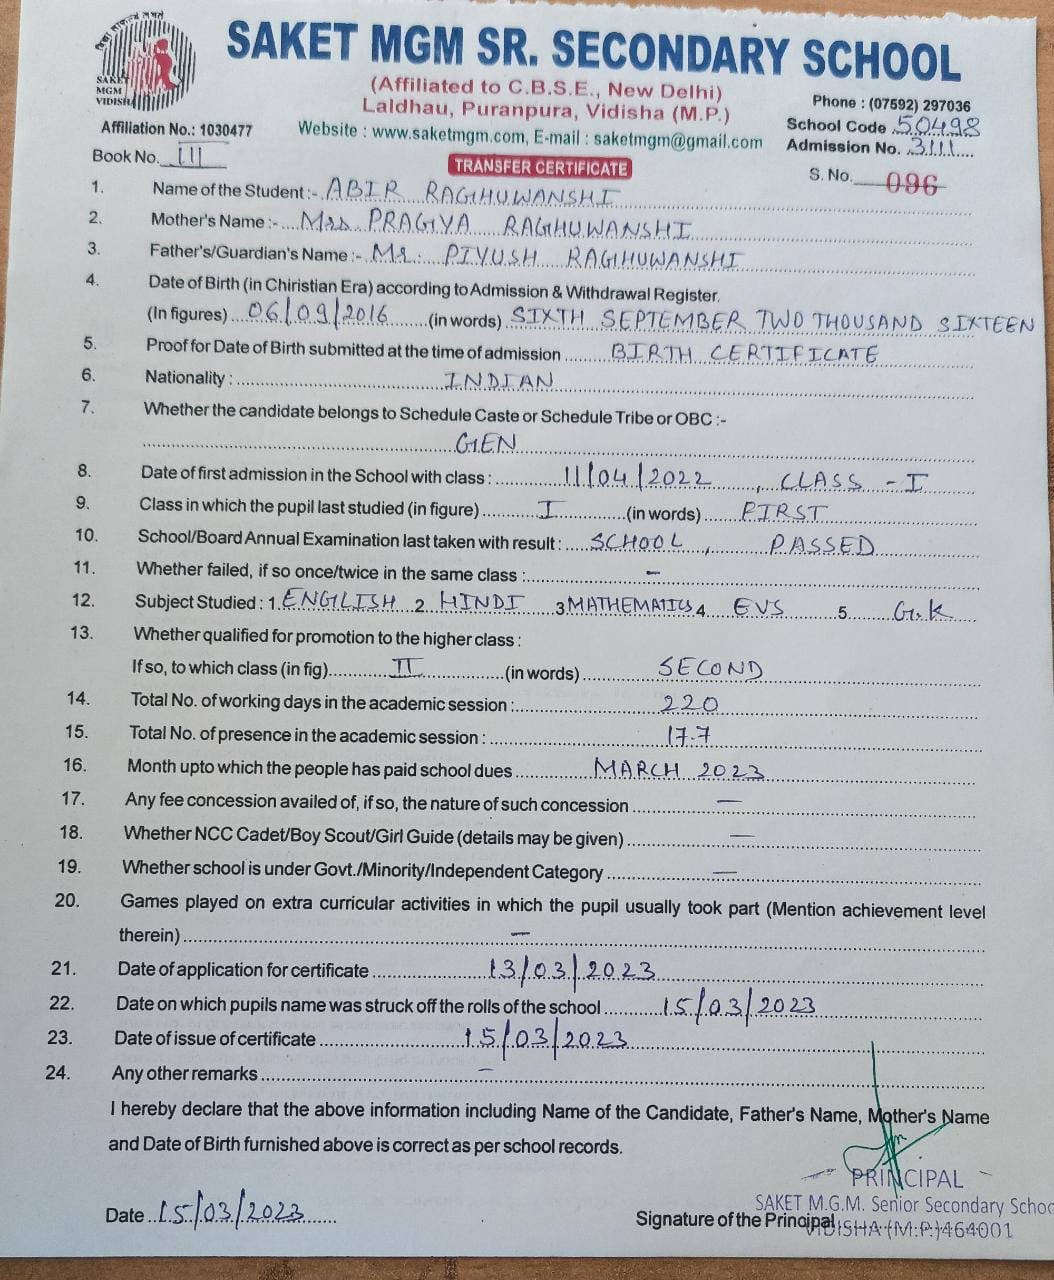 SAKET MGM SR. SECONDARY SCHOOL
SAKET
MGM
VIDISHA
(Affiliated to C.B.S.E., New Delhi)
Laldhau, Puranpura, Vidisha (M.P.)
Phone : (07592) 297036
Affiliation No.: 1030477
Website : www.saketmgm.com, E-mail : saketmgm@gmail.com
School Code 50498
Admission No. 3111
Book No. III
TRANSFER CERTIFICATE
S. No. 096
1. Name of the Student :- ABIR RAGHUWANSHI
2. Mother's Name :- Mrs PRAGYA RAGHUWANSHI
3. Father's/Guardian's Name :- Mr. PIYUSH RAGHUWANSHI
4. Date of Birth (in Chiristian Era) according to Admission & Withdrawal Register.
(In figures) 06/09/2016 (in words) SIXTH SEPTEMBER TWO THOUSAND SIXTEEN
5. Proof for Date of Birth submitted at the time of admission BIRTH CERTIFICATE
6. Nationality : INDIAN
7. Whether the candidate belongs to Schedule Caste or Schedule Tribe or OBC :-
GEN
8. Date of first admission in the School with class : 11/04/2022, CLASS - I
9. Class in which the pupil last studied (in figure) I (in words) FIRST
10. School/Board Annual Examination last taken with result : SCHOOL, PASSED
11. Whether failed, if so once/twice in the same class : -
12. Subject Studied : 1. ENGLISH 2. HINDI 3 MATHEMATICS 4 EVS 5. G.K
13. Whether qualified for promotion to the higher class :
If so, to which class (in fig) II (in words) SECOND
14. Total No. of working days in the academic session : 220
15. Total No. of presence in the academic session : 177
16. Month upto which the people has paid school dues MARCH 2023
17. Any fee concession availed of, if so, the nature of such concession —
18. Whether NCC Cadet/Boy Scout/Girl Guide (details may be given) —
19. Whether school is under Govt./Minority/Independent Category —
20. Games played on extra curricular activities in which the pupil usually took part (Mention achievement level
therein) —
21. Date of application for certificate 13/03/2023
22. Date on which pupils name was struck off the rolls of the school 15/03/2023
23. Date of issue of certificate 15/03/2023
24. Any other remarks -
I hereby declare that the above information including Name of the Candidate, Father's Name, Mother's Name
and Date of Birth furnished above is correct as per school records.
PRINCIPAL
SAKET M.G.M. Senior Secondary Schoo
Date 15/03/2023
Signature of the Principal
VIDISHA (M.P.) 464001